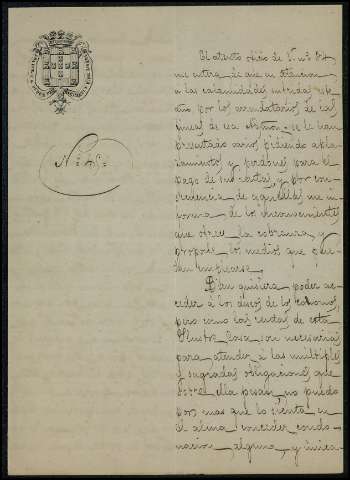 El atento oficio de V. nº 84
me entera de que en atencion
á las calamidades sufridas este
año por los arrendatarios de las
fincas de esa se le han
presentado varios pidiendo apla-
zamientos y perdones para el
pago de sus rentas, y por con-
secuencia de aquellas me in-
forma de los inconvenientes
que ofrece la cobranza y
propone los medios que pue-
dan emplearse.
Bien quisiera poder ac-
ceder á los deseos de los colonos,
pero como las rentas de esta
Ilustre Casa son necesarias
para atender á las múltiples
y sagradas obligaciones que
sobre ella pesan, no puedo
por mas que lo sienta en
el alma conceder condo-
nacion alguna, y única-